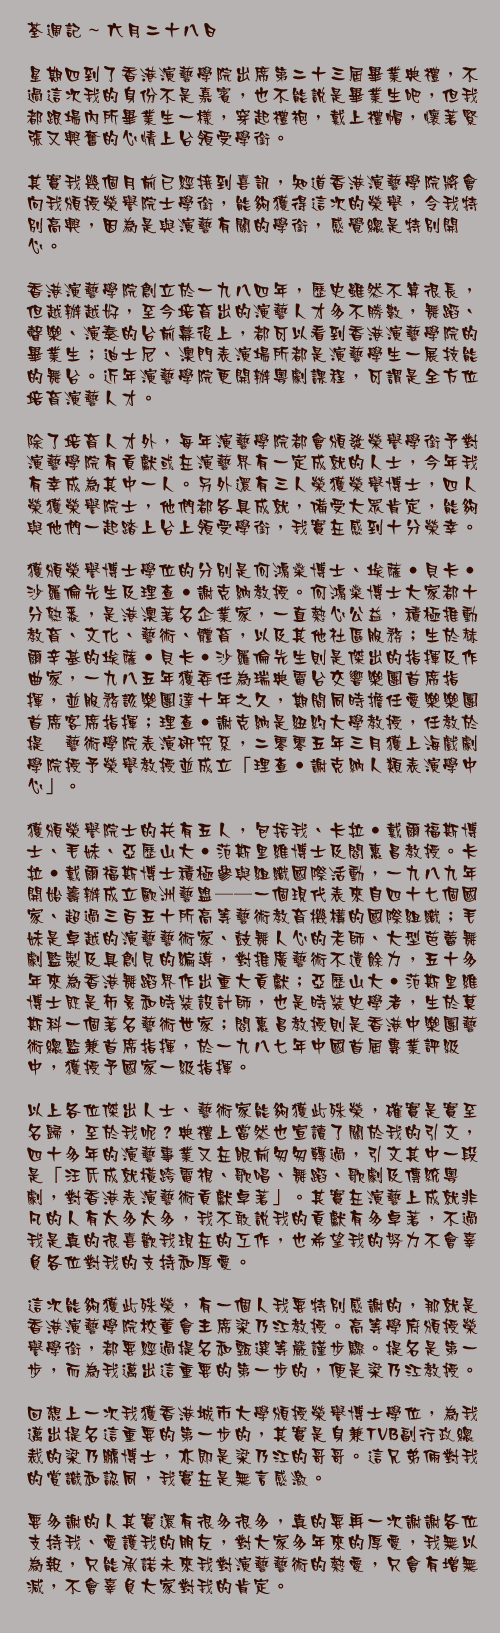 荃週記 ~ 六月二十八日
星期四到了香港演藝學院出席第二十三屆畢業典禮，不
過這次我的身份不是嘉賓，也不能說是畢業生呢，但我
都跟場內所畢業生一樣，穿起禮袍，戴上禮帽，懷著緊
張又興奮的心情上台領受學銜。
其實我幾個月前已經接到喜訊，知道香港演藝學院將會
向我頒授榮譽院士學銜，能夠獲得這次的榮譽，令我特
別高興，因為是與演藝有關的學銜，感覺總是特別開
心。
香港演藝學院創立於一九八四年，歷史雖然不算很長，
但越辦越好，至今培育出的演藝人才多不勝數，舞蹈、
聲樂、演奏的台前幕後上，都可以看到香港演藝學院的
畢業生；迪士尼、澳門表演場所都是演藝學生一展技能
的舞台。近年演藝學院更開辦粵劇課程，可謂是全方位
培育演藝人才。
除了培育人才外，每年演藝學院都會頒發榮譽學銜予對
演藝學院有貢獻或在演藝界有一定成就的人士，今年我
有幸成為其中一人。另外還有三人榮獲榮譽博士，四人
榮獲榮譽院士，他們都各具成就，備受大眾肯定，能夠
與他們一起踏上台上領受學銜，我實在感到十分榮幸。
獲頒榮譽博士學位的分別是何鴻燊博士、埃薩•貝卡•
沙羅倫先生及理查•謝克納教授。何鴻燊博士大家都十
分熟悉，是港澳著名企業家，一直熱心公益，積極推動
教育、文化、藝術、體育，以及其他社區服務；生於赫
爾辛基的埃薩•貝卡•沙羅倫先生則是傑出的指揮及作
曲家，一九八五年獲委任為瑞典電台交響樂團首席指
揮，並服務該樂團達十年之久，期間同時擔任愛樂樂團
首席客席指揮；理查•謝克納是紐約大學教授，任教於
提　藝術學院表演研究系，二零零五年三月獲上海戲劇
學院授予榮譽教授並成立「理查•謝克納人類表演學中
心」。
獲頒榮譽院士的共有五人，包括我、卡拉•戴爾福斯博
士、毛妹、亞歷山大•范斯里維博士及閻惠昌教授。卡
拉•戴爾福斯博士積極參與組織國際活動，一九八九年
開始籌辦成立歐洲藝盟——一個現代表來自四十七個國
家、超過三百五十所高等藝術教育機構的國際組織；毛
妹是卓越的演藝藝術家、鼓舞人心的老師、大型芭蕾舞
劇監製及具創見的編導，對推廣藝術不遺餘力，五十多
年來為香港舞蹈界作出重大貢獻；亞歷山大•范斯里維
博士既是布景和時裝設計師，也是時裝史學者，生於莫
斯科一個著名藝術世家；閻惠昌教授則是香港中樂團藝
術總監兼首席指揮，於一九八七年中國首屆專業評級
中，獲授予國家一級指揮。
以上各位傑出人士、藝術家能夠獲此殊榮，確實是實至
名歸，至於我呢？典禮上當然也宣讀了關於我的引文，
四十多年的演藝事業又在眼前匆匆轉過，引文其中一段
是「汪氏成就橫跨電視、歌唱、舞蹈、歌劇及傳統粵
劇，對香港表演藝術貢獻卓著」。其實在演藝上成就非
凡的人有太多太多，我不敢說我的貢獻有多卓著，不過
我是真的很喜歡我現在的工作，也希望我的努力不會辜
負各位對我的支持和厚愛。
這次能夠獲此殊榮，有一個人我要特別感謝的，那就是
香港演藝學院校董會主席梁乃江教授。高等學府頒授榮
譽學銜，都要經過提名和甄選等嚴謹步驟。提名是第一
步，而為我邁出這重要的第一步的，便是梁乃江教授。
回想上一次我獲香港城市大學頒授榮譽博士學位，為我
邁出提名這重要的第一步的，其實是身兼TVB副行政總
裁的梁乃鵬博士，亦即是梁乃江的哥哥。這兄弟倆對我
的賞識和認同，我實在是無言感激。
要多謝的人其實還有很多很多，真的要再一次謝謝各位
支持我、愛護我的朋友，對大家多年來的厚愛，我無以
為報，只能承諾未來我對演藝藝術的熱愛，只會有增無
減，不會辜負大家對我的肯定。